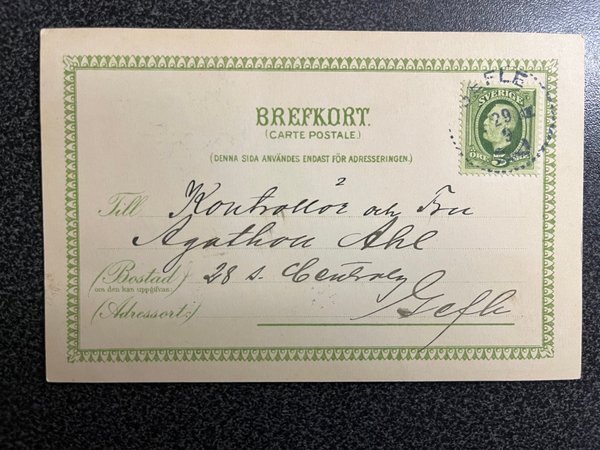 GEFLE
SVERIGE
29
9
5
ÖRE
BREFKORT.
(CARTE POSTALE.)
(DENNA SIDA ANVÄNDES ENDAST FÖR ADRESSERINGEN.)
Till Kontrollör och Fru
Agathon Ahl
(Bostad) 28 S. Centralg
om den kan uppgifvas:
(Adressort:) Gefle